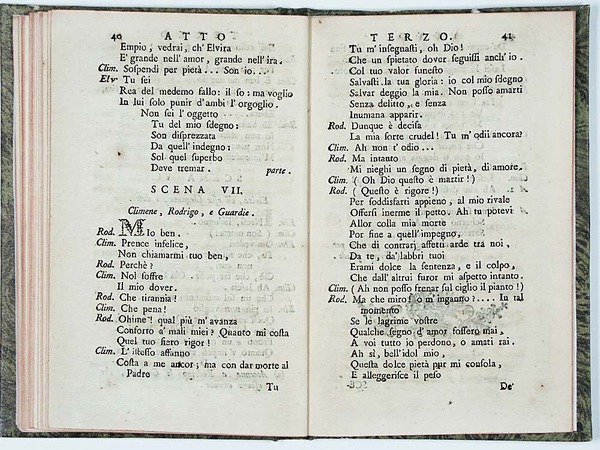 40 ATTO
Empio, vedrai, ch' Elvira
E' grande nell' amor, grande nell' ira.
Clim. Sospendi per pietà... Son io...
Elv. Tu sei
Rea del medemo fallo: il so: ma voglio
In lui solo punir d' ambi l' orgoglio.
Non sei l' oggetto
Tu del mio sdegno:
Son disprezzata
Da quell' indegno:
Sol quel superbo
Deve tremar. parte.
SCENA VII.
Climene, Rodrigo, e Guardie.
Rod. MIo ben.
Clim. Prence infelice,
Non chiamarmi tuo ben,
Rod. Perchè?
Clim. Nol soffre
Il mio dover.
Rod. Che tirannia!
Clim. Che pena!
Rod. Ohime! qual più m' avanza
Conforto a' mali miei? Quanto mi costa
Quel tuo fiero rigor!
Clim. L' istesso affanno
Costa a me ancor; ma con dar morte al
Padre
Tu
TERZO. 41
Tu m' insegnasti, oh Dio!
Che un spietato dover seguissi anch' io.
Col tuo valor funesto
Salvasti la tua gloria: io col mio sdegno
Salvar deggio la mia. Non posso amarti
Senza delitto, e senza
Inumana apparir.
Rod. Dunque è decisa
La mia sorte crudel! Tu m' odii ancora?
Clim. Ah non t' odio...
Rod. Ma intanto
Mi nieghi un segno di pietà, di amore.
Clim. (Oh Dio questo è martir!)
Rod. (Questo è rigore!)
Per soddisfarti appieno, al mio rivale
Offersi inerme il petto. Ah tu potevi
Allor colla mia morte
Por fine a quell' impegno,
Che di contrarj affetti arde tra noi,
Da te, da' labbri tuoi
Erami dolce la sentenza, e il colpo,
Che dall' altrui furor mi aspetto intanto.
Clim. (Ah non posso frenar sul ciglio il pianto!)
Rod. Ma che miro! o m' inganno?.... In tal
momento
Se le lagrime vostre
Qualche segno d' amor fossero mai,
A voi tutto io perdono, o amati rai.
Ah sì, bell' idol mio,
Questa dolce pietà pur mi consola,
E alleggerisce il peso
De'